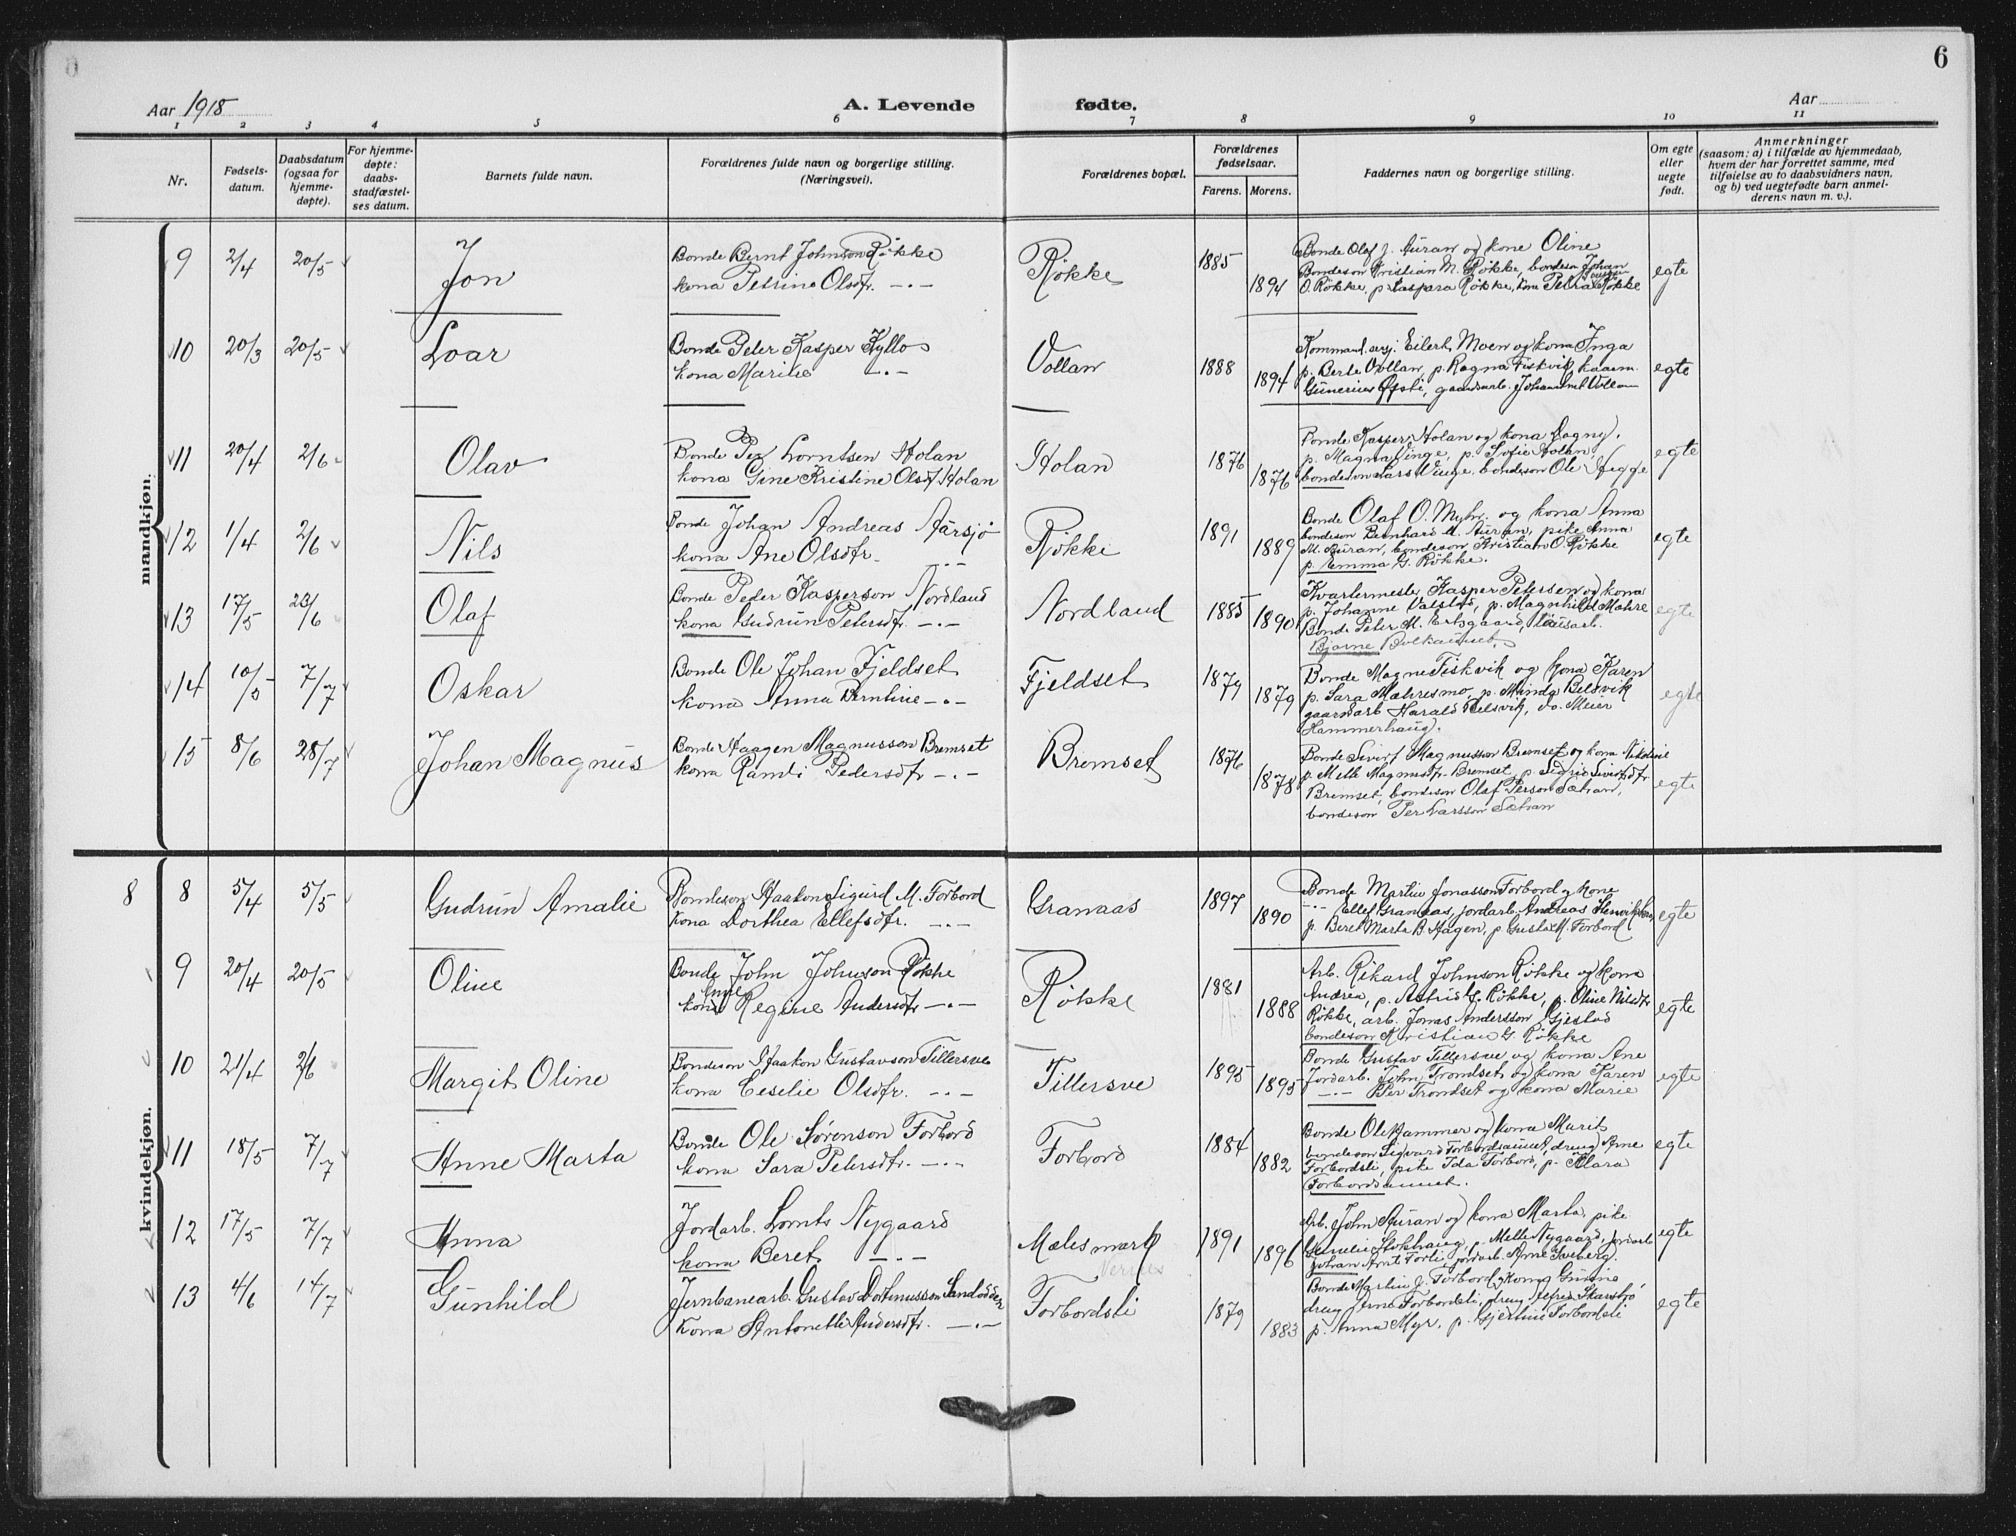 6
Aar 1918
A. Levende fødte.
Aar
1 2 3 4 5 6 7 8 9 10 11
Nr.
Fødsels-
datum.
Daabsdatum
(ogsaa for
hjemme-
døpte).
For hjemme-
døpte:
daabs-
stadfæstel-
ses datum.
Barnets fulde navn.
Forældrenes fulde navn og borgerlige stilling.
(Næringsvei).
Forældrenes bopæl.
Forældrenes
fødselsaar.
Farens. Morens.
Faddernes navn og borgerlige stilling.
Om egte
eller
uegte
født.
Anmerkninger
(saasom: a) i tilfælde av hjemmedaab,
hvem der har forrettet samme, med
tilføielse av to daabsvidners navn,
og b) ved uegtefødte barn anmel-
derens navn m. v.).
mandkjøn.
9 2/4 20/5 Jon
Bonde Bernt Johnson Røkke
kona Petrine Olsdtr. -"-
Røkke 1885 1894
Bonde Olaf J. Auran og kone Oline
Bondeson Kristian M. Røkke, bondeson Johan
O. Røkke, p. Kaspara Røkke, Petra Røkke
egte
10 20/3 20/5 Loar
Bonde Peter Kasper Hyllo
kona Marie -"-
Vollan 1888 1894
Kommand. serj. Eilert Moen og kona Inga
p. Berte Vollan, p. Ragna Fiskvik,
Gunerius Øfsti, gaardsarb. Vollan
egte
11 20/4 2/6 Olav
Bonde Per Lorntsen Holan
kona Gine Kristine Olsdt. Holan
Holan 1876 1876
Bonde Kasper Holan og kona Dagny,
p. Magna Vinge, p. Sofie Holan,
bondeson Lars Vinge, bondeson Ole Hegge
egte
12 1/4 2/6 Nils
Bonde Johan Andreas Aarsjø
kona Ane Olsdtr. -"-
Røkke 1891 1889
Bonde Olaf O. Myhr og kona Anna
bondeson Bernhard M. Auran, pike Anna
M. Auran, bondeson Kristian O. Røkke
p. Emma G. Røkke.
egte
13 17/5 23/6 Olaf
Bonde Peder Kasperson Nordland
kona Gudrun Petersdtr. -"-
Nordland 1885 1890
Kvartermester Kasper Petersen og kona
p. Johanne Valstad, p. Magnhild Mæhre
Bonde Peter M. Ertsgaard,
Bjarne
egte
14 10/5 7/7 Oskar
Bonde Ole Johan Fjeldset
kona Anna Berntine -"-
Fjeldset 1879 1879
Bonde Magne Fiskvik og kona Karen
p. Sara Mæhresmo, p. Minda Belsvik
gaardarb. Harald Belsvik, do. Meier
Hammerhaug.
egte
15 8/6 28/7 Johan Magnus
Bonde Haagen Magnusson Bremset
kona Randi Pedersdtr -"-
Bremset 1876 1878
Bonde Sivert Magnusson Bremset og kona Nikoline
p. Mette Magnusdtr. Bremset, p. Sigrid Sivertsdtr
Bremset, bondeson Olaf Person Sætran,
bondeson Per Larsson Sætran
egte
kvindekjøn.
8 8 5/4 5/5 Gudrun Amalie
Bondeson Haakon Sigurd M. Forbord
kona Dorthea Ellefsdtr. -"-
Granaas 1897 1890
Bonde Martin Jonasson Forbord og kone
-"- Ellef Granaas, jordarb. Andreas
p. Beret Marta B. Hagen, p. Gusta M. Forbord
egte
9 20/4 20/5 Oline
Bonde John Johnson Røkke
kona Regine Andersdtr -"-
Røkke 1881 1888
Arb. Rikard Johnson Røkke og kona
Andrea, p. Astrid Røkke, p. Oline Nilsdtr
Røkke, arb. Jonas Andersson Gjestad
bondeson Kristian G. Røkke
egte
10 21/4 2/6 Margit Oline
Bondeson Haakon Gustavson Tillersve
kona Cesilie Olsdtr. -"-
Tillersve 1895 1895
Bonde Gustav Tillersve og kona Ane
Jordarb. John Trondset og kona Karen
-"- Per Trondset og kona Marie
egte
11 18/5 7/7 Anne Marta
Bonde Ole Sørenson Forbord
kona Sara Petersdtr. -"-
Forbord 1884 1882
Bonde Ole Hammer og kona Marit
bondeson Sigvard Forbordsaunet, dreng Arne
Forbordsli, pike Ida Forbord, p. Klara
Forbordsaunet.
egte
12 17/5 7/7 Anna
Jordarb. Lornts Nygaard
kona Beret -"-
Mælesmark 1891 1896
Arb. John Auran og kona Marta, pike
Stokhaug, p. Mette Nygaard, jordarb
Johan Arnt Forli, jordarb. Arne
egte
13 4/6 14/7 Gunhild
Jernbanearb. Gustav Dortinusson Sandodden
kona Antonette Andersdtr. -"-
Forbordsli 1879 1883
Bonde Martin J. Forbord og kona Gurine
dreng Arne Forbordsli, dreng Alfred Skarsbø
p. Anna Myr, p. Gjertine Forbordsli
egte